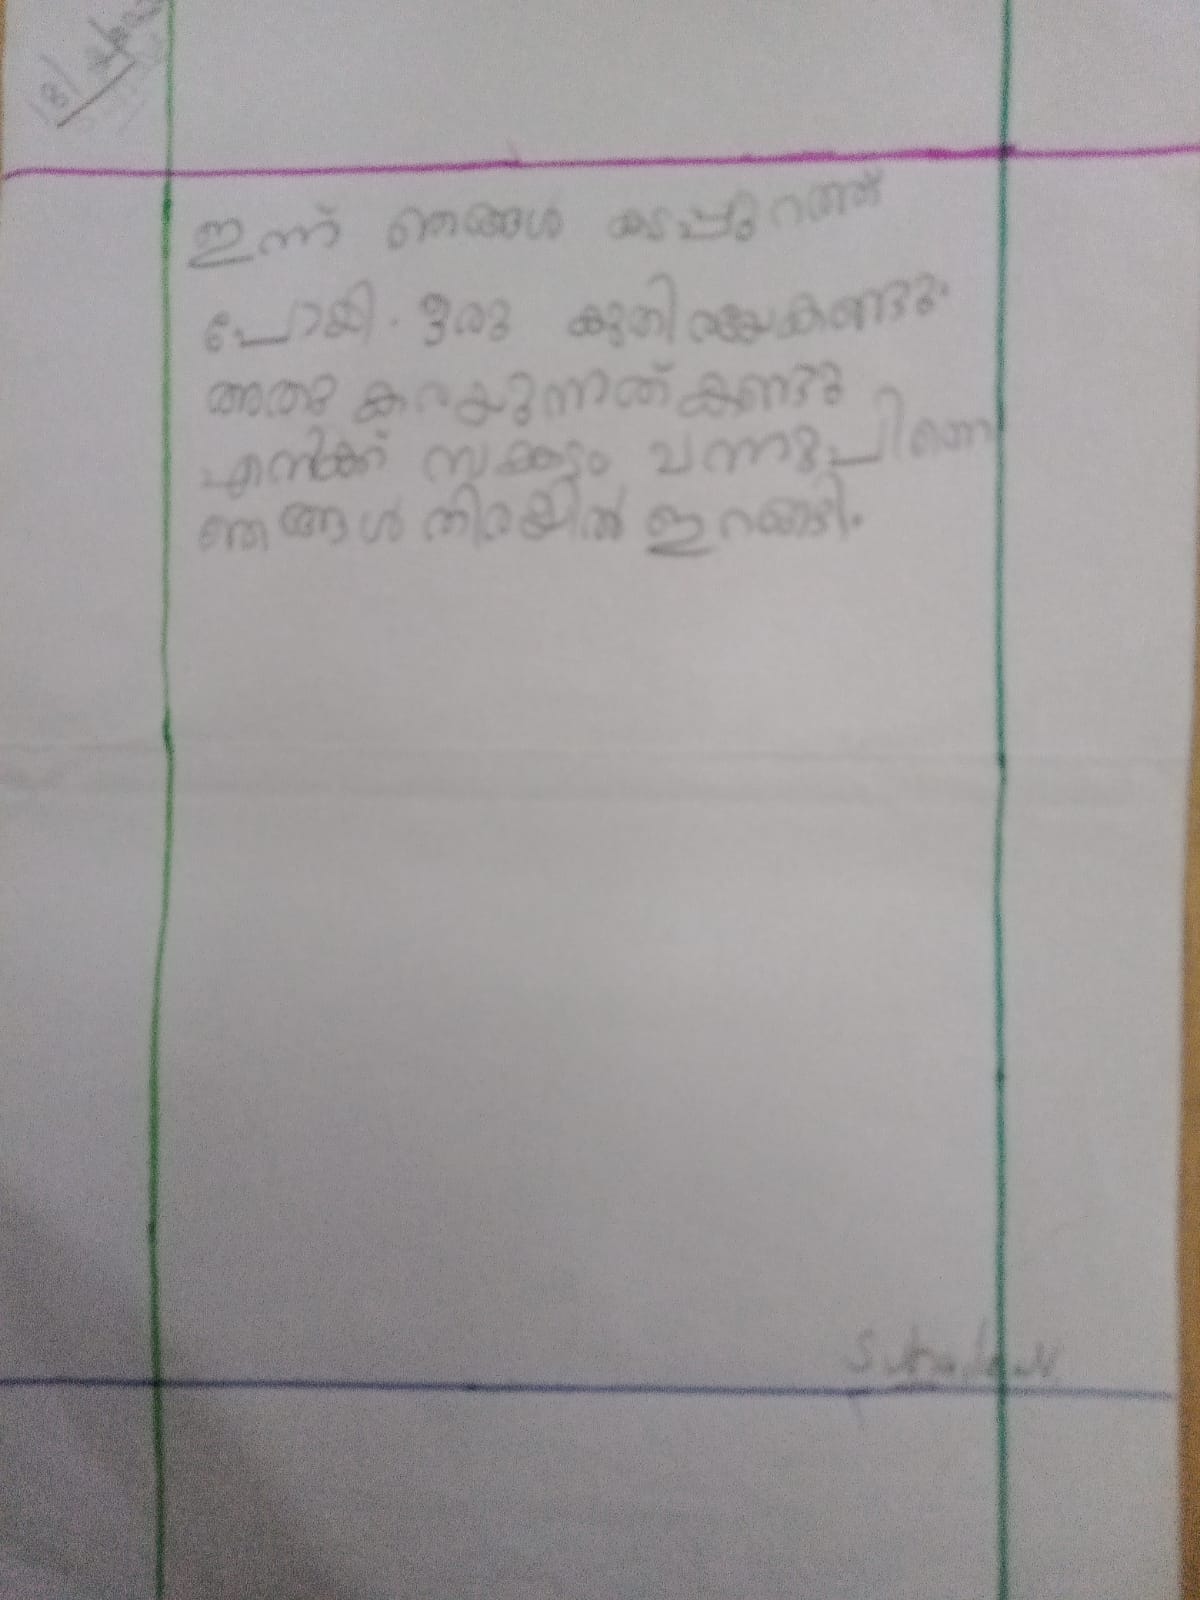 ഇന്ന് ഞങ്ങൾ കടപ്പുറത്ത്
പോയി. ഒരു കുതിരയെ കണ്ടു.
അതു കരയുന്നത് കണ്ടു
എനിക്ക് സങ്കടം വന്നു പിന്നെ
ഞങ്ങൾ തിരയിൽ ഇറങ്ങി.